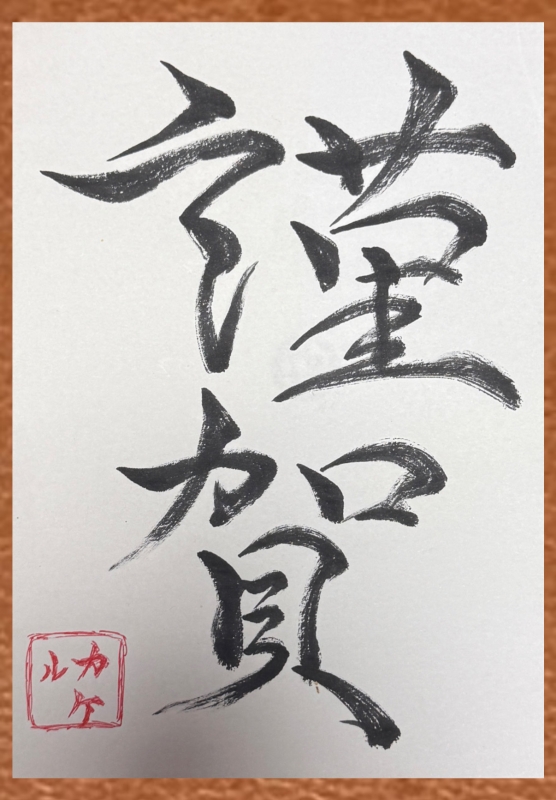 謹賀
カケル